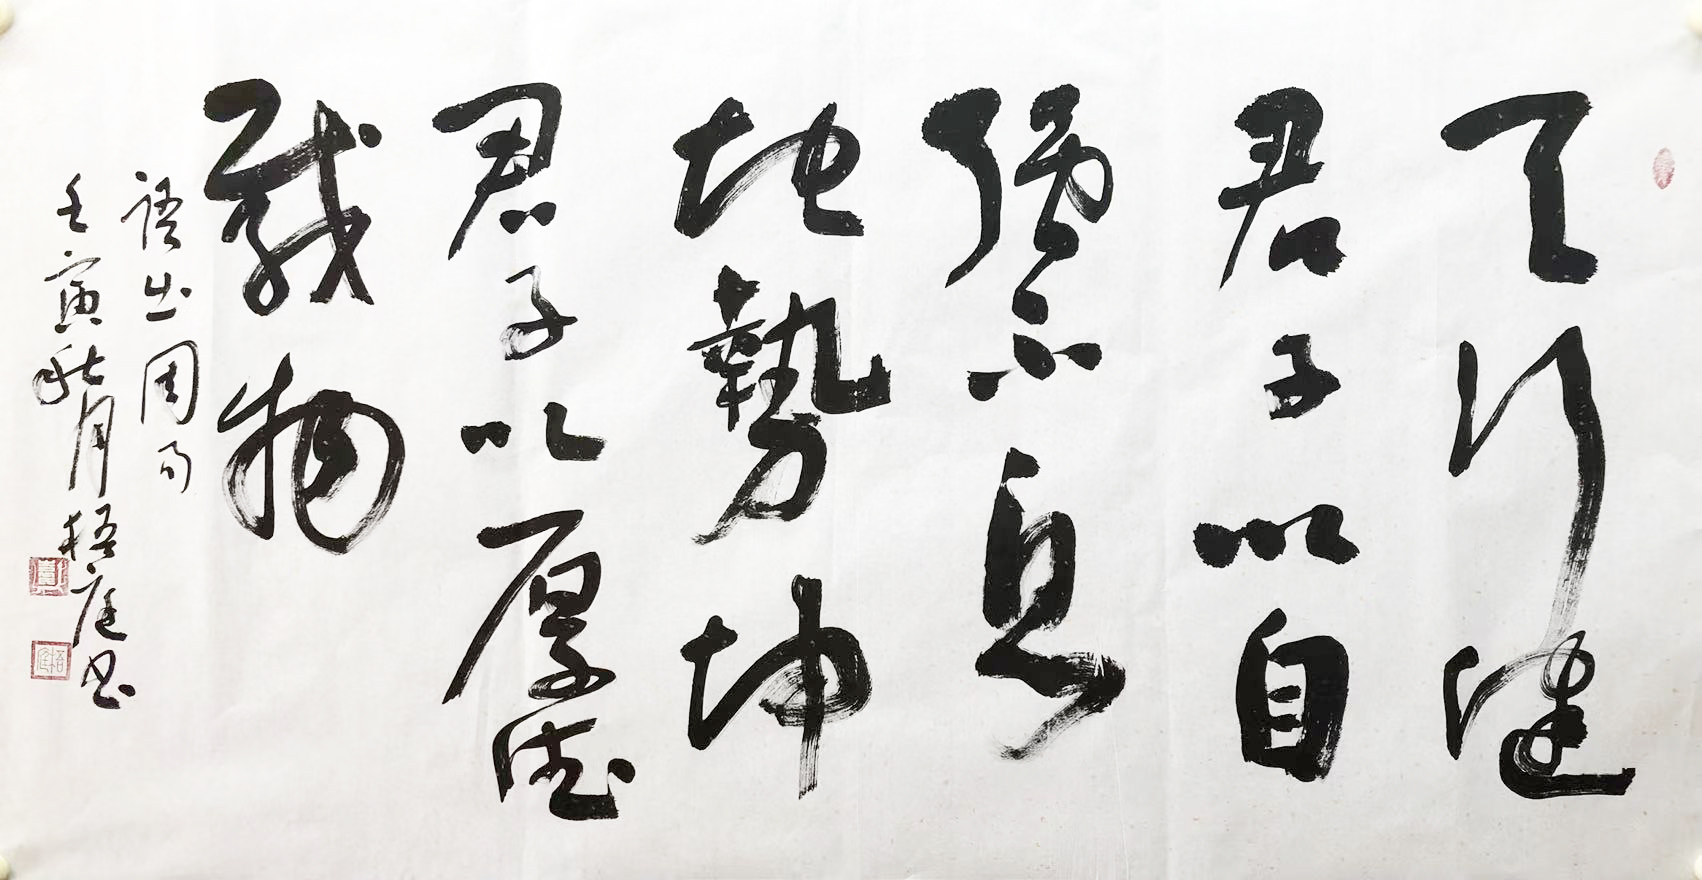 天行健
君子以自
强不息
地勢坤
君子以厚德
载物
语出周易
壬寅秋月梧庭书